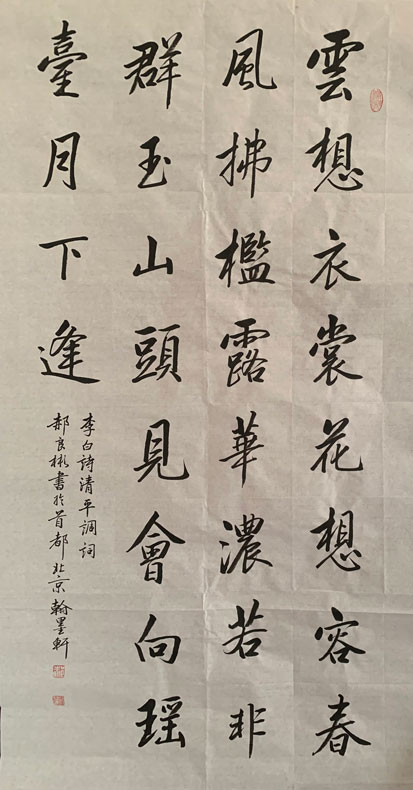 雲想衣裳花想容春
風拂檻露華濃若非
群玉山頭見會向瑶
臺月下逢
李白詩清平調詞
郝良彬書於首都北京翰墨軒